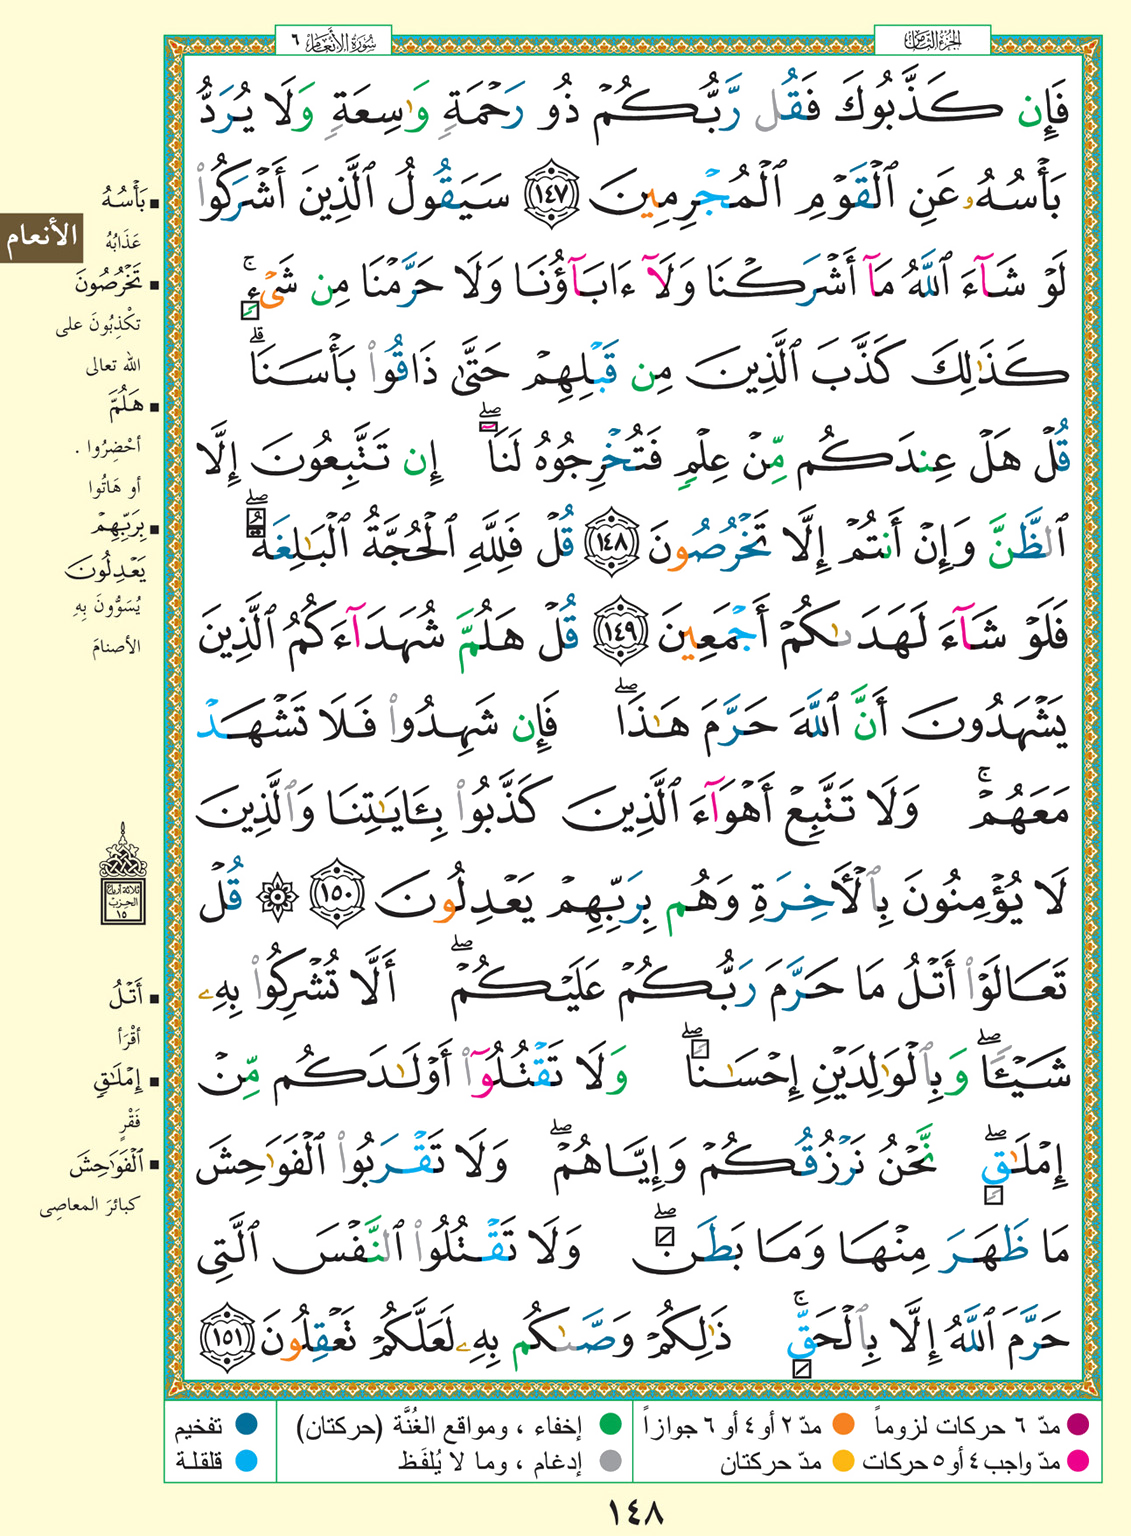 الجزء الثامن
سُورَةُ الأَنْعَامِ ٦
فَإِن كَذَّبُوكَ فَقُل رَّبُّكُمْ ذُو رَحْمَةٍ وَٰسِعَةٍ وَلَا يُرَدُّ
بَأْسُهُۥ عَنِ ٱلْقَوْمِ ٱلْمُجْرِمِينَ ١٤٧ سَيَقُولُ ٱلَّذِينَ أَشْرَكُوا۟
لَوْ شَآءَ ٱللَّهُ مَآ أَشْرَكْنَا وَلَآ ءَابَآؤُنَا وَلَا حَرَّمْنَا مِن شَىْءٍ ۚ
كَذَٰلِكَ كَذَّبَ ٱلَّذِينَ مِن قَبْلِهِمْ حَتَّىٰ ذَاقُوا۟ بَأْسَنَا ۗ
قُلْ هَلْ عِندَكُم مِّنْ عِلْمٍ فَتُخْرِجُوهُ لَنَآ ۖ إِن تَتَّبِعُونَ إِلَّا
ٱلظَّنَّ وَإِنْ أَنتُمْ إِلَّا تَخْرُصُونَ ١٤٨ قُلْ فَلِلَّهِ ٱلْحُجَّةُ ٱلْبَٰلِغَةُ ۖ
فَلَوْ شَآءَ لَهَدَىٰكُمْ أَجْمَعِينَ ١٤٩ قُلْ هَلُمَّ شُهَدَآءَكُمُ ٱلَّذِينَ
يَشْهَدُونَ أَنَّ ٱللَّهَ حَرَّمَ هَٰذَا ۖ فَإِن شَهِدُوا۟ فَلَا تَشْهَدْ
مَعَهُمْ ۚ وَلَا تَتَّبِعْ أَهْوَآءَ ٱلَّذِينَ كَذَّبُوا۟ بِـَٔايَٰتِنَا وَٱلَّذِينَ
لَا يُؤْمِنُونَ بِٱلْـَٔاخِرَةِ وَهُم بِرَبِّهِمْ يَعْدِلُونَ ١٥٠ ۞ قُلْ
تَعَالَوْا۟ أَتْلُ مَا حَرَّمَ رَبُّكُمْ عَلَيْكُمْ ۖ أَلَّا تُشْرِكُوا۟ بِهِۦ
شَيْـًٔا ۖ وَبِٱلْوَٰلِدَيْنِ إِحْسَٰنًا ۖ وَلَا تَقْتُلُوٓا۟ أَوْلَٰدَكُم مِّنْ
إِمْلَٰقٍ ۖ نَّحْنُ نَرْزُقُكُمْ وَإِيَّاهُمْ ۖ وَلَا تَقْرَبُوا۟ ٱلْفَوَٰحِشَ
مَا ظَهَرَ مِنْهَا وَمَا بَطَنَ ۖ وَلَا تَقْتُلُوا۟ ٱلنَّفْسَ ٱلَّتِى
حَرَّمَ ٱللَّهُ إِلَّا بِٱلْحَقِّ ۚ ذَٰلِكُمْ وَصَّىٰكُم بِهِۦ لَعَلَّكُمْ تَعْقِلُونَ ١٥١
بَأْسُهُ
الأنعام
عَذَابُهُ
تَخْرُصُونَ
تكْذِبُونَ على
الله تعالى
هَلُمَّ
أحْضِرُوا .
أو هَاتُوا
بِرَبِّهِمْ
يَعْدِلُونَ
يُسَوُّونَ بِهِ
الأصنامَ
ثلاثة أرباع
الحزب
١٥
أَتْلُ
أقْرَأ
إِمْلَٰقٍ
فَقْرٍ
ٱلْفَوَٰحِشَ
كبائرَ المعاصِى
مدّ ٦ حركات لزوماً
مدّ ٢ أو ٤ أو ٦ جوازاً
إخفاء ، ومواقع الغُنَّة (حركتان)
تفخيم
مدّ واجب ٤ أو ٥ حركات
مدّ حركتان
إدغام ، وما لا يُلفَظ
قلقلة
١٤٨